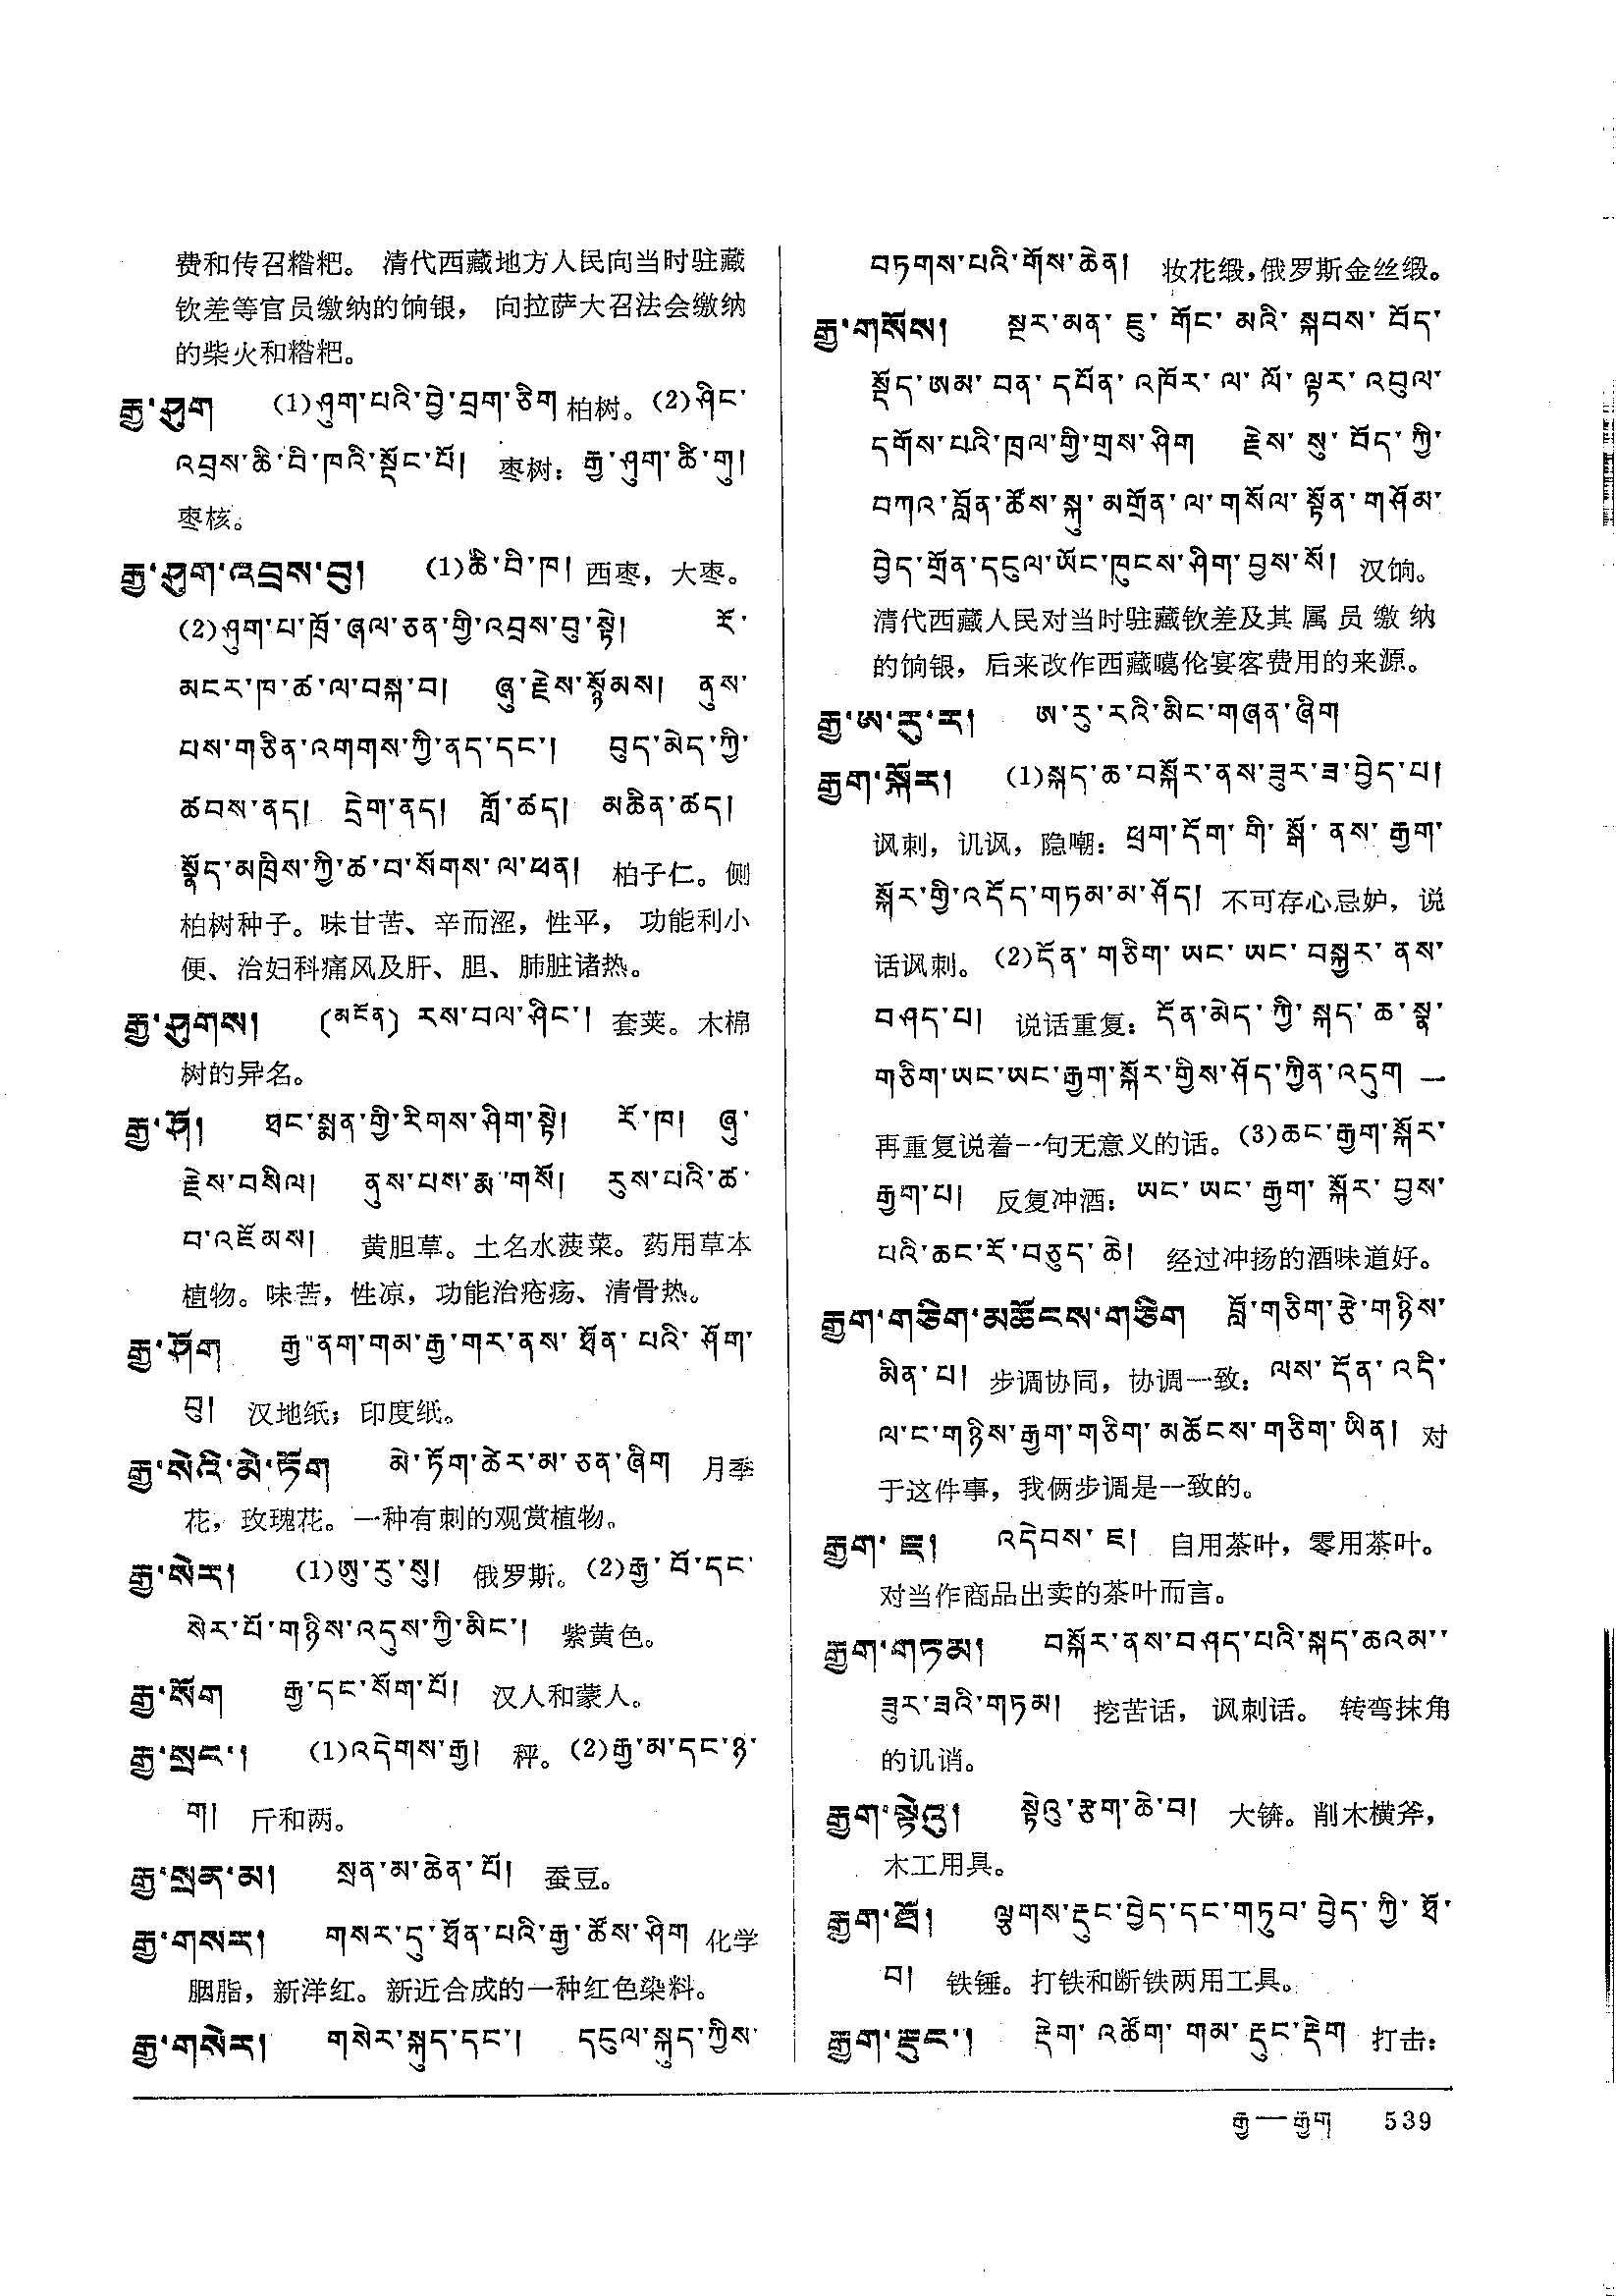 费和传召糌粑。 清代西藏地方人民向当时驻藏
钦差等官员缴纳的饷银， 向拉萨大召法会缴纳
的柴火和糌粑。
རྒྱ་ཤུག (1)ཤུག་པའི་བྱེ་བྲག་ཅིག 柏树。(2)ཤིང་
འབྲས་ཆི་བི་ཁའི་སྡོང་པོ། 枣树：རྒྱ་ཤུག་ཚི་གུ།
枣核。
རྒྱ་ཤུག་འབྲས་བུ། (1)ཆི་བི་ཁ། 西枣，大枣。
(2)ཤུག་པ་ཁྲོ་ཞལ་ཅན་གྱི་འབྲས་བུ་སྟེ། རོ་
མངར་ཁ་ཚ་ལ་བསྐ་བ། ཞུ་རྗེས་སྙོམས། ནུས་
པས་གཅིན་འགགས་ཀྱི་ནད་དང་། བུད་མེད་ཀྱི་
ཚབས་ནད། དྲེག་ནད། གློ་ཚད། མཆིན་ཚད།
སྣོད་མཁྲིས་ཀྱི་ཚ་བ་སོགས་ལ་ཕན། 柏子仁。侧
柏树种子。味甘苦、辛而涩，性平， 功能利小
便、治妇科痛风及肝、胆、肺脏诸热。
རྒྱ་ཤུགས། (མངོན) རས་བལ་ཤིང་། 套荚。木棉
树的异名。
རྒྱ་ཤོ། ཐང་སྨན་གྱི་རིགས་ཤིག་སྟེ། རོ་ཁ། ཞུ་
རྗེས་བསིལ། ནུས་པས་རྨ་གསོ། རུས་པའི་ཚ་
བ་འཇོམས། 黄胆草。土名水菠菜。药用草本
植物。味苦，性凉，功能治疮疡、清骨热。
རྒྱ་ཤོག རྒྱ་ནག་གམ་རྒྱ་གར་ནས་ཐོན་པའི་ཤོག་
བུ། 汉地纸；印度纸。
རྒྱ་སེའི་མེ་ཏོག མེ་ཏོག་ཚེར་མ་ཅན་ཞིག 月季
花，玫瑰花。一种有刺的观赏植物。
རྒྱ་སེར། (1)ཨུ་རུ་སུ། 俄罗斯。(2)རྒྱ་བོ་དང་
སེར་པོ་གཉིས་འདུས་ཀྱི་མིང་། 紫黄色。
རྒྱ་སོག རྒྱ་དང་སོག་པོ། 汉人和蒙人。
རྒྱ་སྲང་། (1)འདེགས་རྒྱ། 秤。(2)རྒྱ་མ་དང་ཉ་
ག། 斤和两。
རྒྱ་སྲན་མ། སྲན་མ་ཆེན་པོ། 蚕豆。
རྒྱ་གསར། གསར་དུ་ཐོན་པའི་རྒྱ་ཚོས་ཤིག 化学
胭脂，新洋红。新近合成的一种红色染料。
རྒྱ་གསེར། གསེར་སྐུད་དང་། དངུལ་སྐུད་ཀྱིས་
བཏགས་པའི་གོས་ཆེན། 妆花缎，俄罗斯金丝缎。
རྒྱ་གསོས། སྔར་མན་ཇུ་གོང་མའི་སྐབས་བོད་
སྡོད་ཨམ་བན་དཔོན་འཁོར་ལ་ལོ་ལྟར་འབུལ་
དགོས་པའི་ཁྲལ་གྱི་གྲས་ཤིག རྗེས་སུ་བོད་ཀྱི་
བཀའ་བློན་ཚོས་སྐུ་མགྲོན་ལ་གསོལ་སྟོན་གཤོམ་
བྱེད་གྲོན་དངུལ་ཡོང་ཁུངས་ཤིག་བྱས་སོ། 汉饷。
清代西藏人民对当时驻藏钦差及其属员缴纳
的饷银，后来改作西藏噶伦宴客费用的来源。
རྒྱ་ཨ་རུ་ར། ཨ་རུ་རའི་མིང་གཞན་ཞིག
རྒྱག་སྐོར། (1)སྐད་ཆ་བསྐོར་ནས་ཟུར་ཟ་བྱེད་པ།
讽刺，讥讽，隐嘲：ཕྲག་དོག་གི་སྒོ་ནས་རྒྱག་
སྐོར་གྱི་འདོད་གཏམ་མ་ཤོད། 不可存心忌妒，说
话讽刺。(2)དོན་གཅིག་ཡང་ཡང་བསྐྱར་ནས་
བཤད་པ། 说话重复：དོན་མེད་ཀྱི་སྐད་ཆ་སྣ་
གཅིག་ཡང་ཡང་རྒྱག་སྐོར་གྱིས་ཤོད་ཀྱིན་འདུག 一
再重复说着一句无意义的话。(3)ཆང་རྒྱག་སྐོར་
རྒྱག་པ། 反复冲酒：ཡང་ཡང་རྒྱག་སྐོར་བྱས་
པའི་ཆང་རོ་བཅུད་ཆེ། 经过冲扬的酒味道好。
རྒྱག་གཅིག་མཆོངས་གཅིག བློ་གཅིག་རྩེ་གཉིས་
མིན་པ། 步调协同，协调一致：ལས་དོན་འདི་
ལ་ང་གཉིས་རྒྱག་གཅིག་མཆོངས་གཅིག་ཡིན། 对
于这件事，我俩步调是一致的。
རྒྱག་ཇ། འདེབས་ཇ། 自用茶叶，零用茶叶。
对当作商品出卖的茶叶而言。
རྒྱག་གཏམ། བསྐོར་ནས་བཤད་པའི་སྐད་ཆའམ་
ཟུར་ཟའི་གཏམ། 挖苦话， 讽刺话。 转弯抹角
的讥诮。
རྒྱག་སྟེའུ། སྟེའུ་རྩག་ཆེ་བ། 大锛。削木横斧，
木工用具。
རྒྱག་ཐོ། ལྕགས་རྡུང་བྱེད་དང་གཏུབ་བྱེད་ཀྱི་ཐོ་
བ། 铁锤。打铁和断铁两用工具。
རྒྱག་རྡུང་། རྡེག་འཚོག་གམ་རྡུང་རྡེག 打击：
རྒྱ—རྒྱག 539